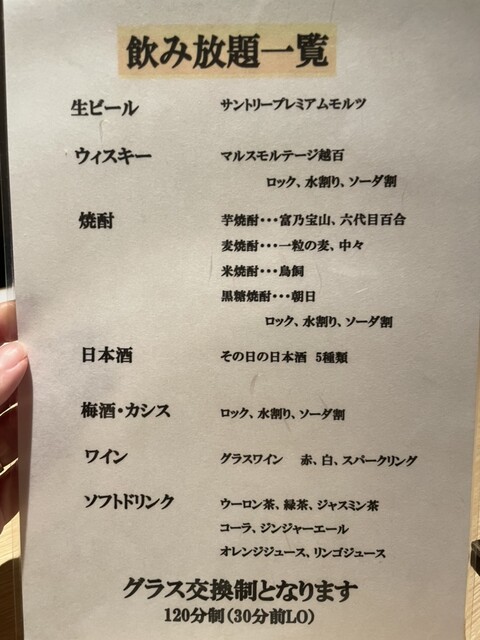 飲み放題一覧
生ビール サントリープレミアムモルツ
ウィスキー マルスモルテージ越百
ロック、水割り、ソーダ割
焼酎 芋焼酎・・・富乃宝山、六代目百合
麦焼酎・・・一粒の麦、中々
米焼酎・・・鳥飼
黒糖焼酎・・・朝日
ロック、水割り、ソーダ割
日本酒 その日の日本酒 5種類
梅酒・カシス ロック、水割り、ソーダ割
ワイン グラスワイン 赤、白、スパークリング
ソフトドリンク ウーロン茶、緑茶、ジャスミン茶
コーラ、ジンジャーエール
オレンジジュース、リンゴジュース
グラス交換制となります
120分制(30分前LO)